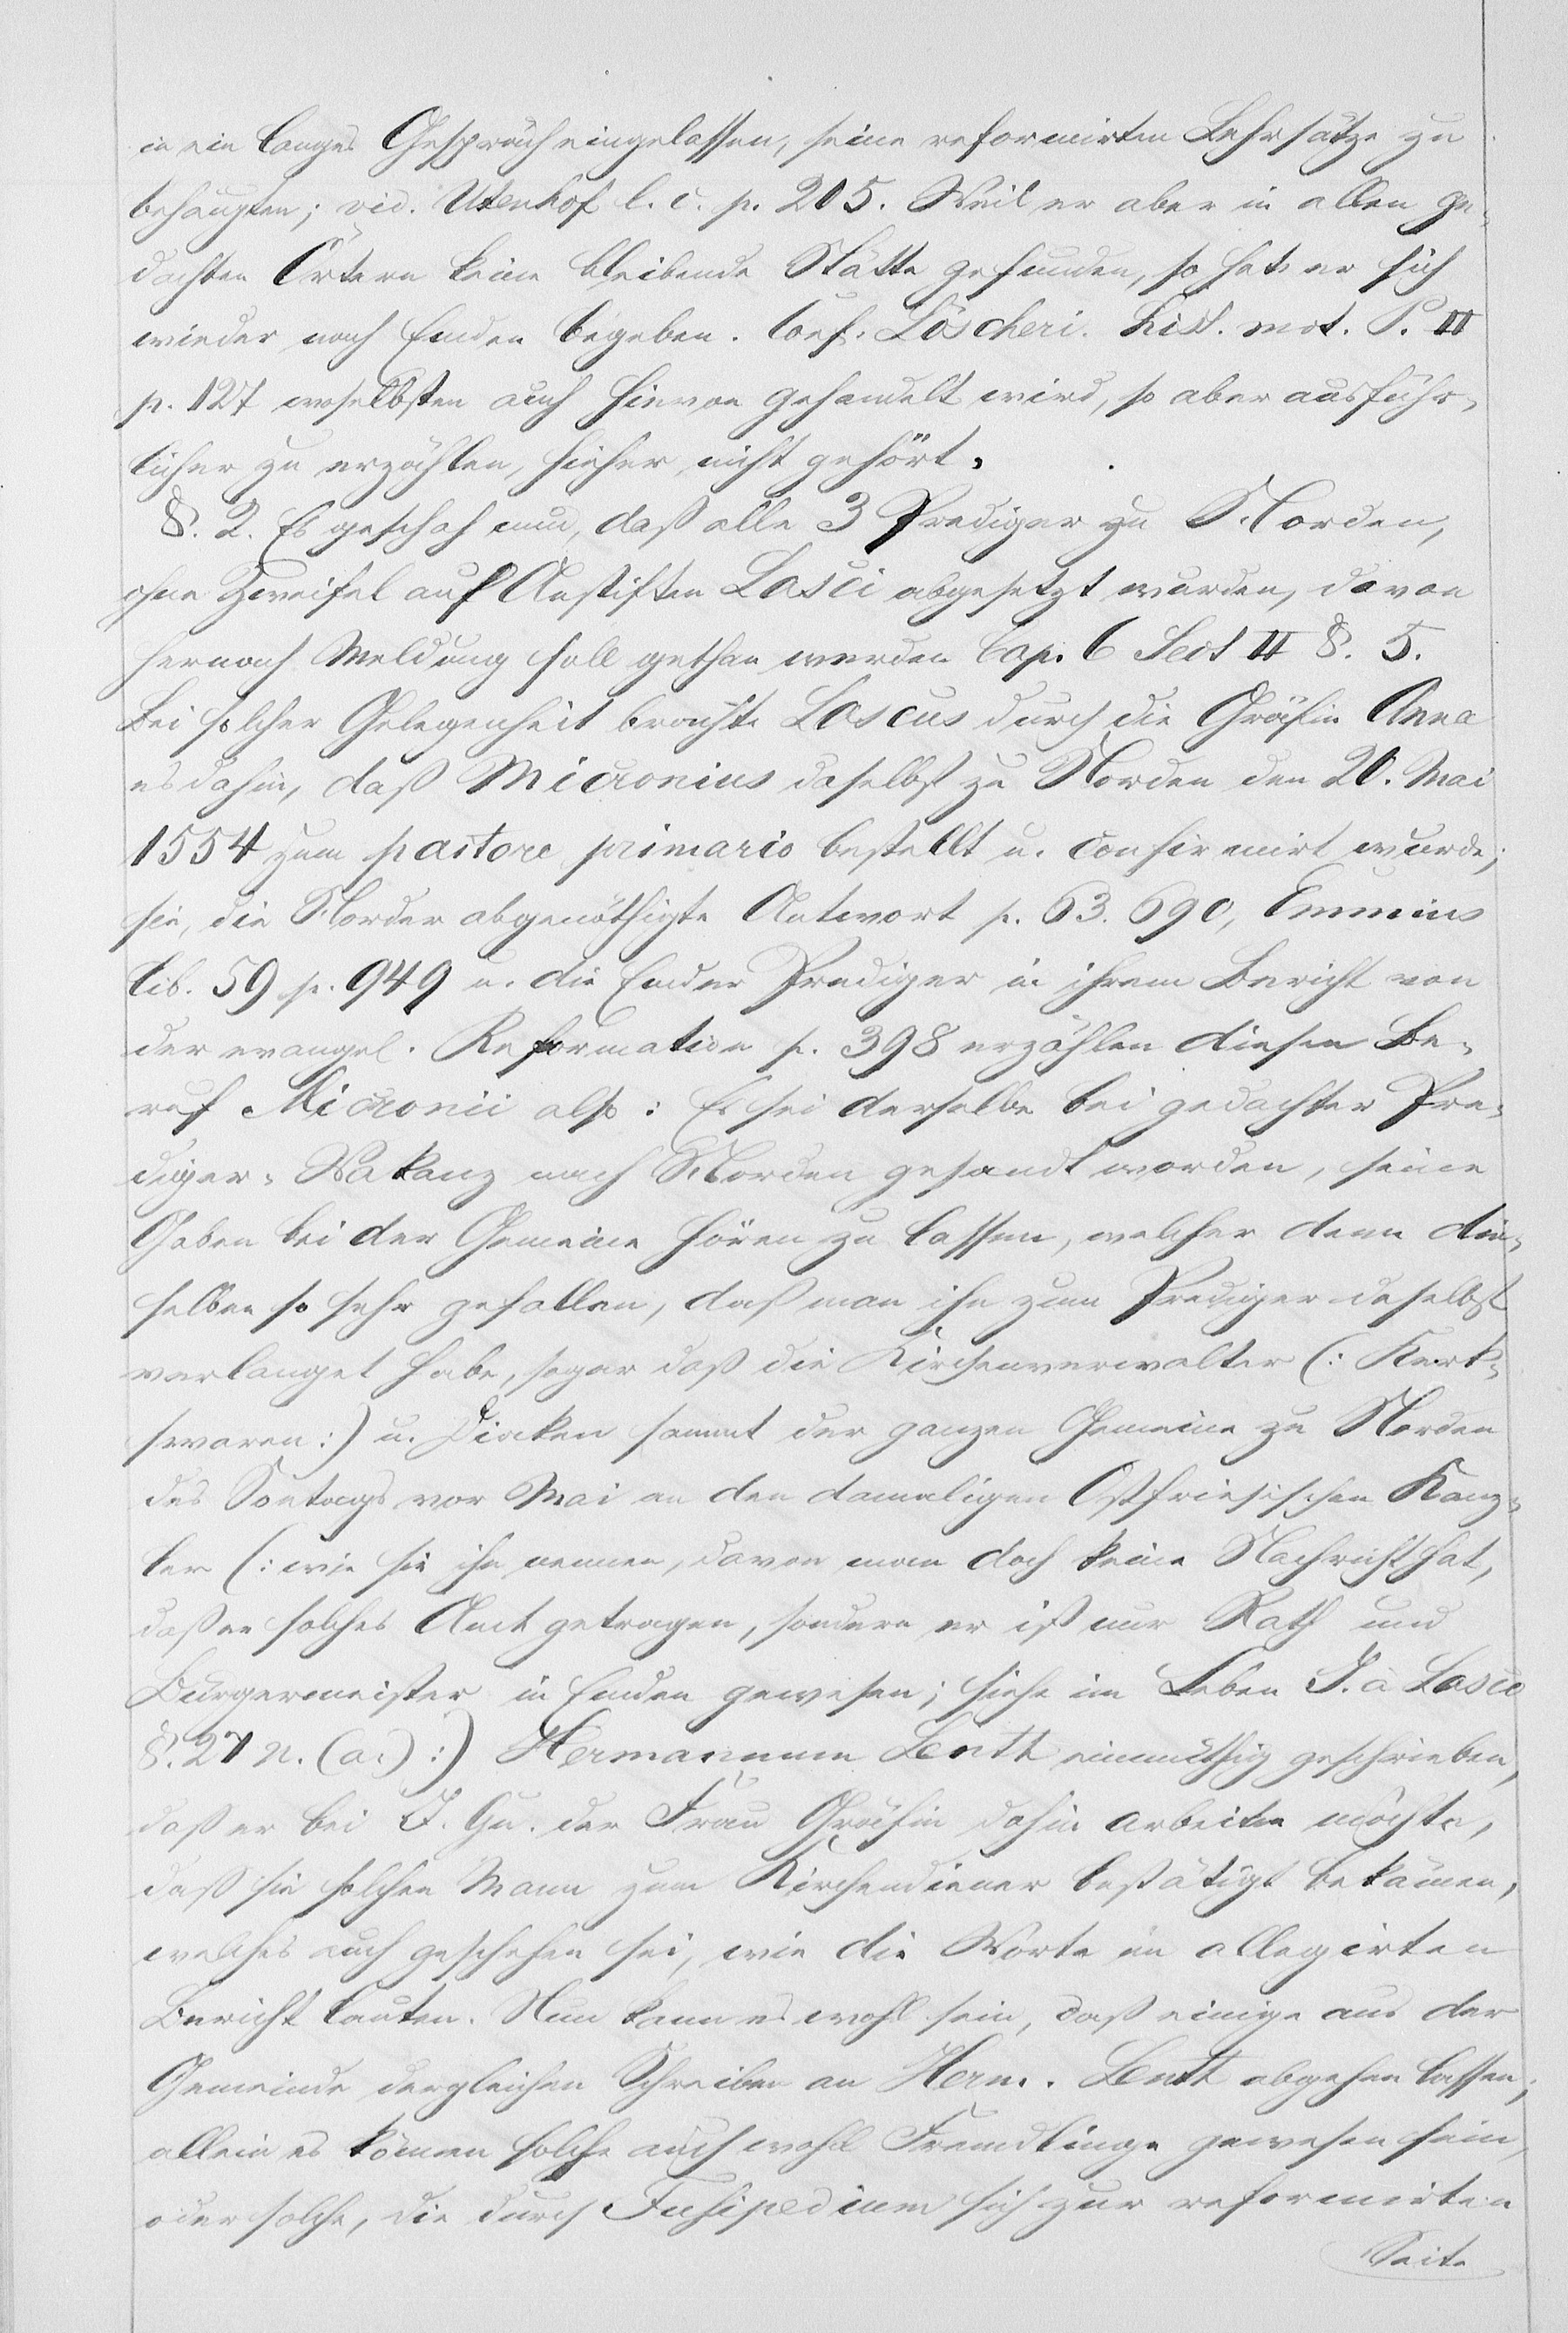 in ein langes Gespräch eingelassen, seine reformirten Lehrsätze zu
behaupten; vid. Utenhof l. c. p. 205. Weil er aber in allen ge-
dachten Örtern keine bleibende Stätte gefunden, so hat er sich
wieder nach Emden begeben. Conf. Löscheri. hist. mot. P. II
p. 127 woselbsten auch hievon gehandelt wird, so aber ausführ-
licher zu erzählen, hieher nicht gehört.
§. 2. Es geschah nun, daß alle 3 Prediger zu Norden,
ohne Zweifel auf Anstiften Lasci abgesetzt wurden, davon
hernach Meldung soll gethan werden Cap. 6 Sect II §. 5.
Bei solcher Gelegenheit brachte Lascus durch die Gräfin Anna
es dahin, daß Micronius daselbst zu Norden den 20. Mai
1554 zum pastore primario bestellt u. confirmirt wurde;
sie, die Norder abgenöthigte Antwort p. 63. 690, Emmius
lib. 59 p. 949 u. die Emder Prediger in ihrem Bericht von
der evangel. Reformation p. 398 erzählen diesen Be-
ruf Micronii also: Es sei derselbe bei gedachter Pre-
diger-Vakanz nach Norden gesandt worden, seine
Gaben bei der Gemeine hören zu lassen, welcher denn die-
selben so sehr gefallen, daß man ihn zum Prediger daselbst
verlanget habe, sogar daß die Kirchenverwalter (: Kerk-
swaren :) u. Diaken sammt der ganzen Gemeine zu Norden
des Sontags vor Mai an den damaligen Ostfriesischen Kanz-
ler (: wie sie ihn nennen, davon man doch keine Nachricht hat,
daß er solches Amt getragen, sondern er ist nur Rath und
Bürgermeister in Emden gewesen; siehe im Leben J. à Lasco
§. 27 n. (a.) :) Hermannum Lentt einmüthig geschrieben,
daß er bei I. Gn. der Frau Gräfin dahin arbeiten möchte,
daß sie solchen Mann zum Kirchendiener bestätigt bekämen,
welches auch geschehen sei, wie die Worte im allegirten
Bericht lauten. Nun kann es wohl sein, daß einige aus der
Gemeinde dergleichen Schreiben an Herm. Lentt abgehen lassen;
allein es können solche auch wohl Fremdlinge gewesen sein,
oder solche, die durch Fusipedium sich zur reformirten
Seite